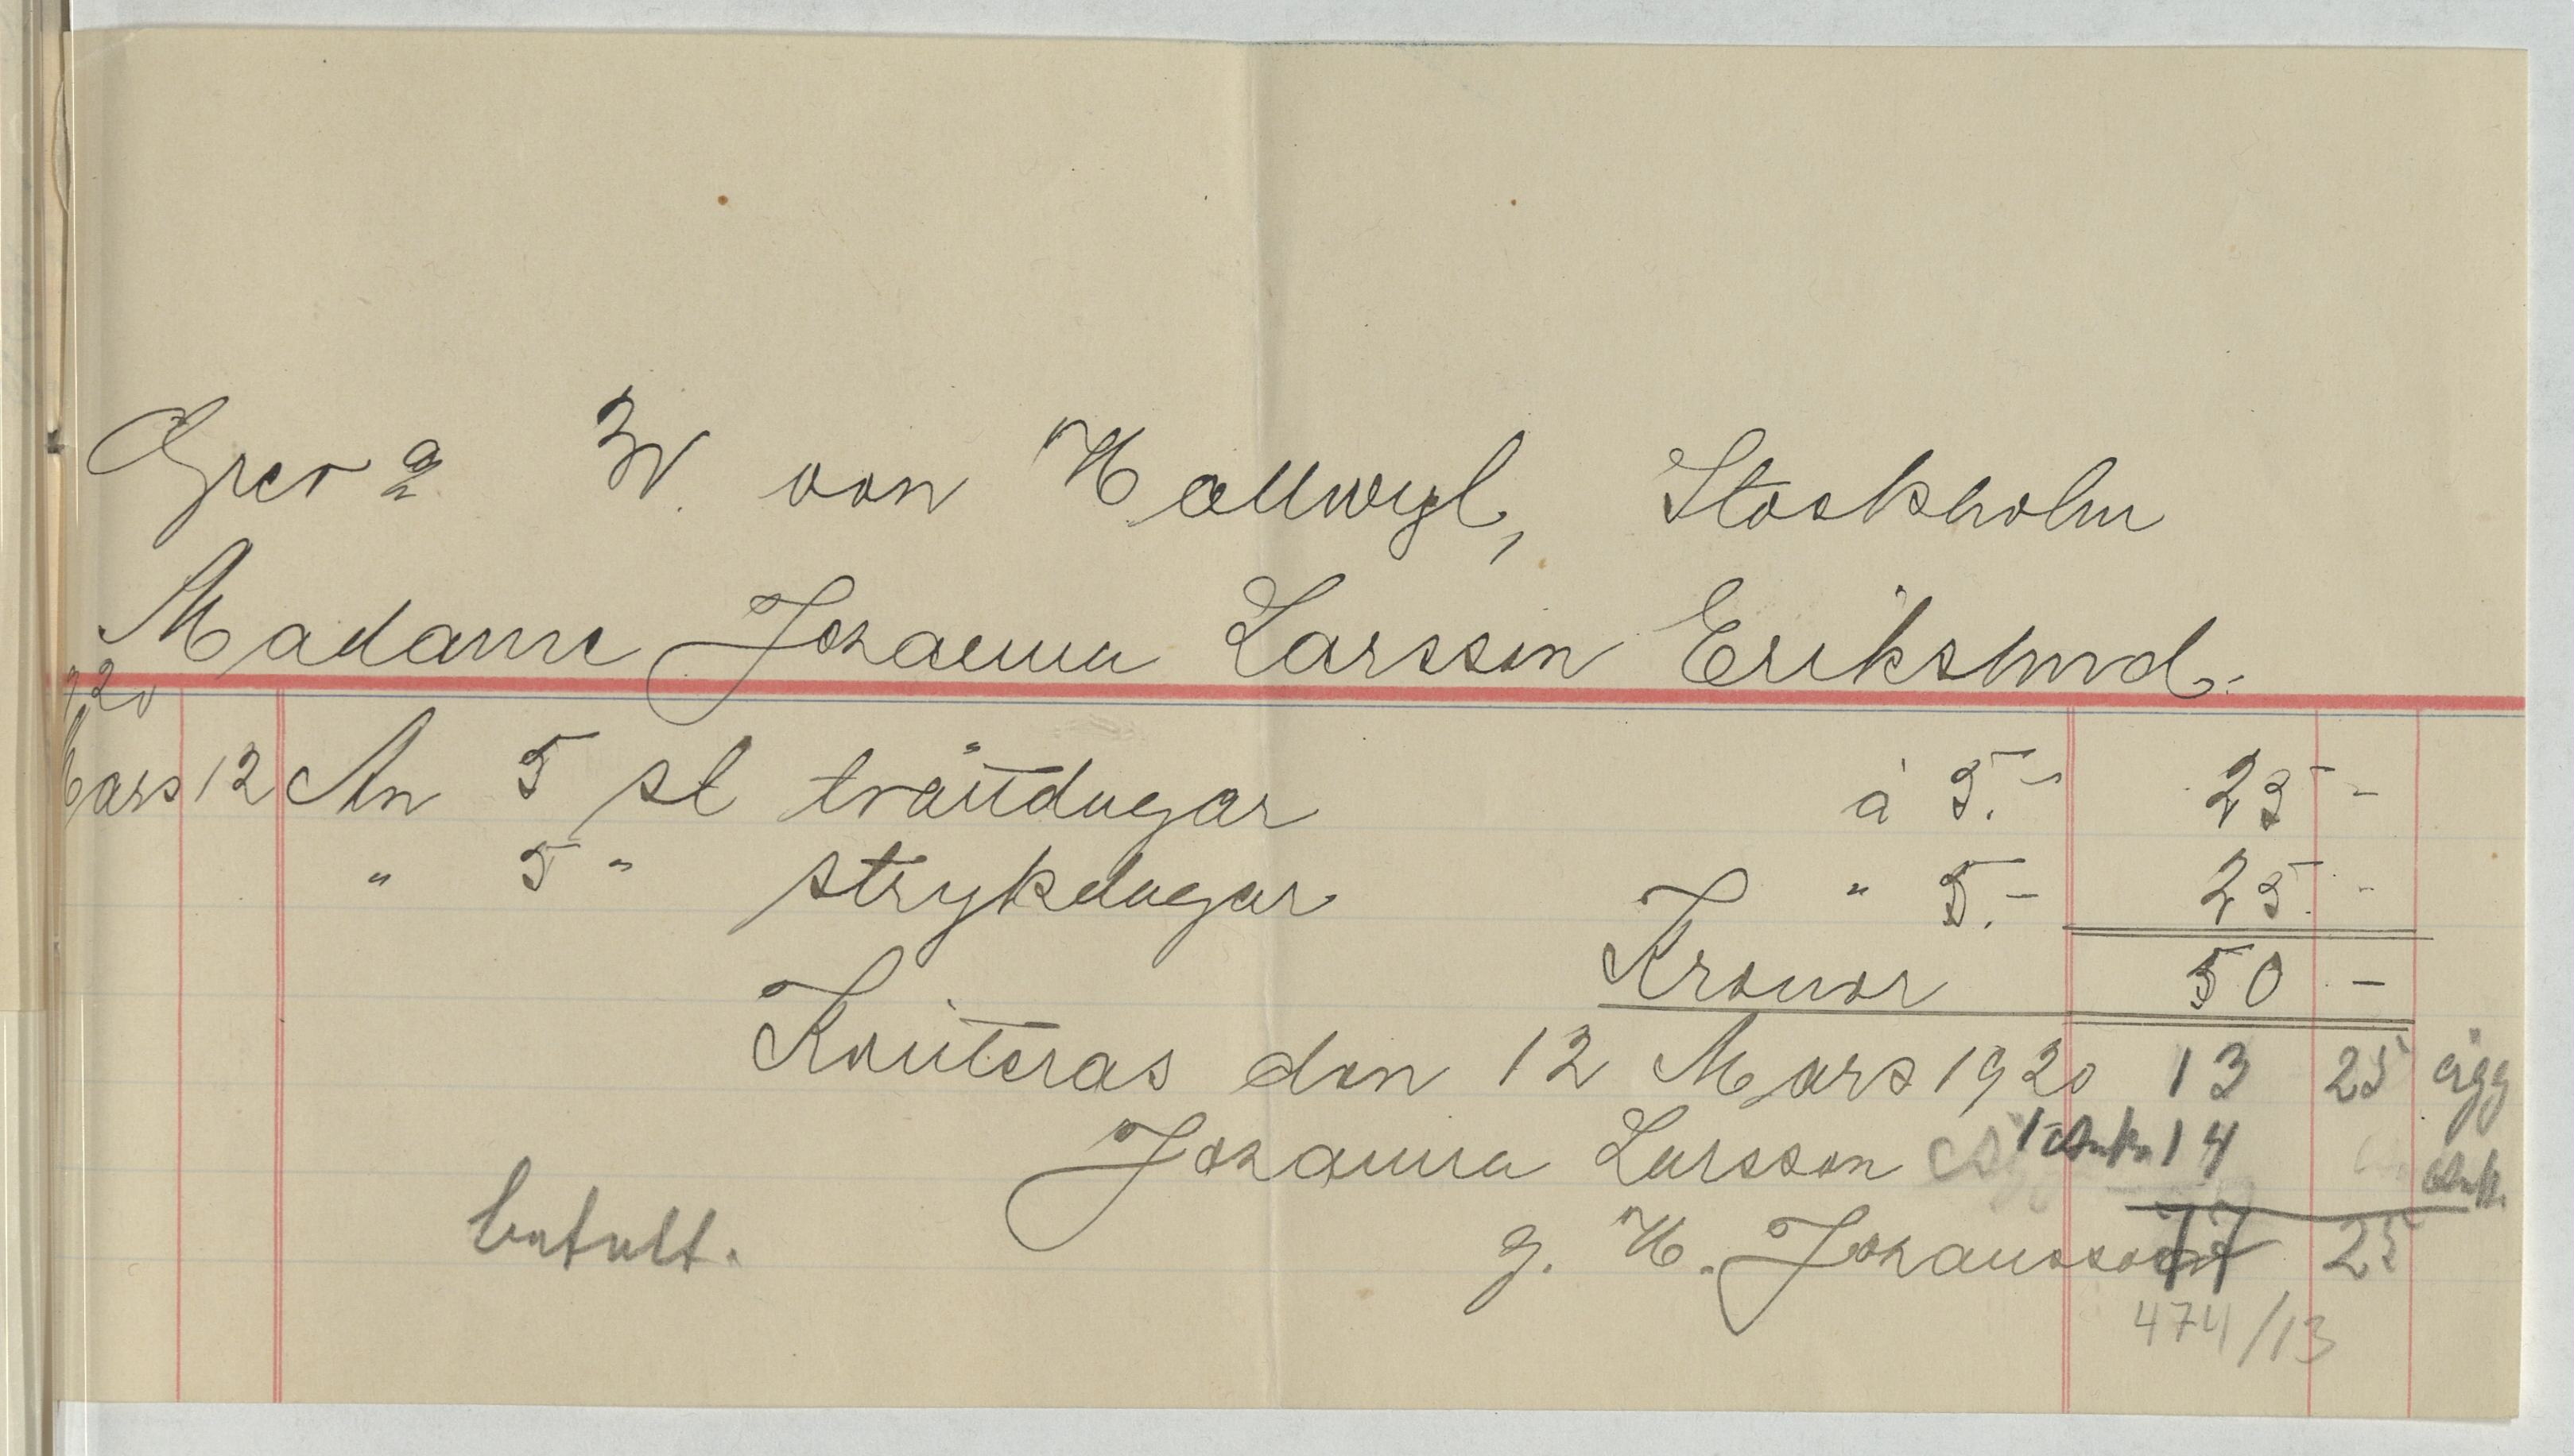 Grev:a W. von Hallwyl, Stockholm
Madame Johanna Larsson Erikslund.
920
Mars 12 An 5 st tvättdagar à 5.- 25 -
" 5 " strykdagar " 5.- 25 -
Kronor 50 -
Kvitteras den 12 Mars 1920 13 25 ägg
Johanna Larsson 1 Ank. 14 Ank.
betalt. g. H. Johansson 77 25
474/13